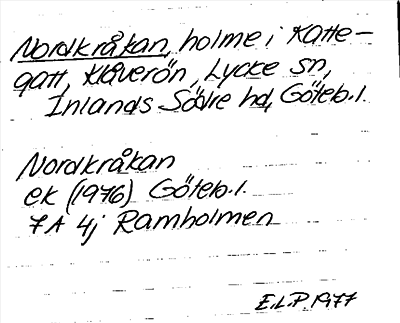 Nordkråkan, holme i Katte-
gatt, Klåverön, Lycke sn,
Inlands Södre hd, Göteb.l.
Nordkråkan
ek (1976) Göteb.l.
7A 4j Ramholmen
E.L.P. 1977